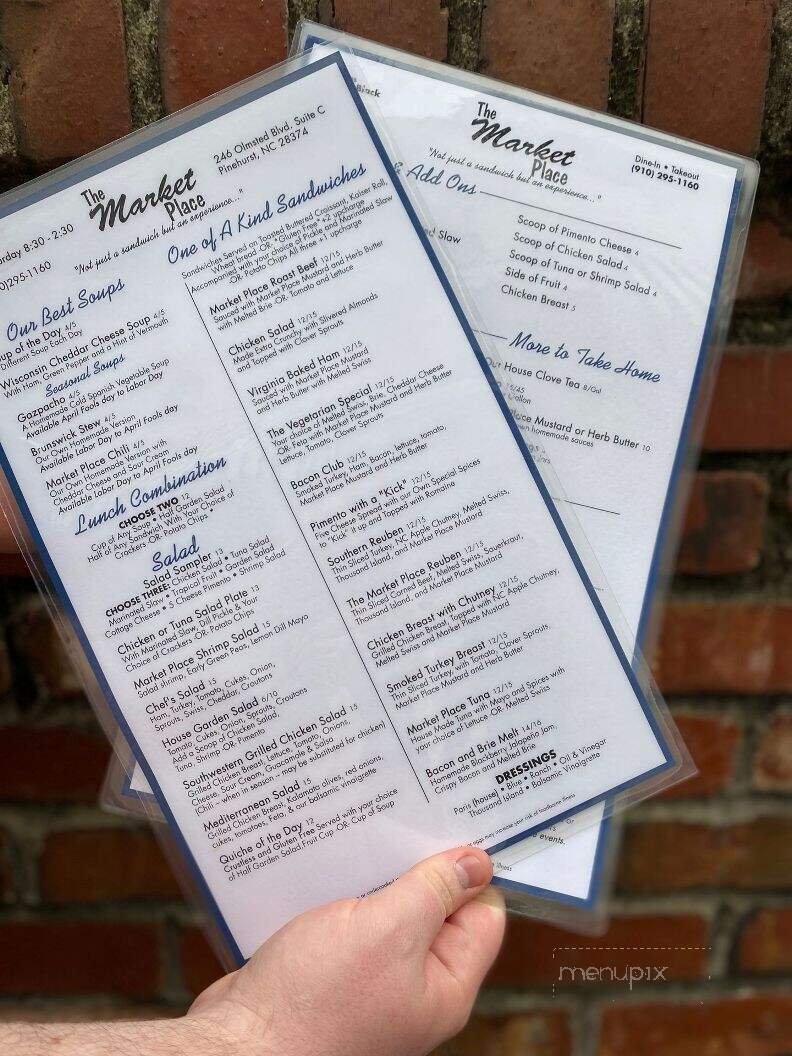 The
Market
Place
246 Olmsted Blvd, Suite C
Pinehurst, NC 28374
8:30 - 2:30
295-1160
"Not just a sandwich but an experience..."
Our Best Soups
of the Day 4/5
Different Soup Each Day
Wisconsin Cheddar Cheese Soup 4/5
With Ham, Green Pepper and a Hint of Vermouth
Seasonal Soups
Gazpacho 4/5
A Homemade Cold Spanish Vegetable Soup
Available April Fools day to Labor Day
Brunswick Stew 4/5
Our Own Homemade Version
Available Labor Day to April Fools day
Market Place Chili 4/5
Our Own Homemade Version with
Cheddar Cheese and Sour Cream
Available Labor Day to April Fools day
Lunch Combination
CHOOSE TWO 12
Cup of Any Soup • Half Garden Salad
Half of Any Sandwich With Your Choice of
Crackers -OR- Potato Chips •
Salad
Salad Sampler 13
CHOOSE THREE: Chicken Salad • Tuna Salad
Marinated Slaw • Tropical Fruit • Garden Salad
Cottage Cheese • 5 Cheese Pimento • Shrimp Salad
Chicken or Tuna Salad Plate 13
With Marinated Slaw, Dill Pickle & Your
Choice of Crackers -OR- Potato Chips
Market Place Shrimp Salad 15
Salad shrimp, Early Green Peas, Lemon Dill Mayo
Chef's Salad 15
Ham, Turkey, Tomato, Cukes, Onion,
Sprouts, Swiss, Cheddar, Croutons
House Garden Salad 6/10
Tomato, Cukes, Onion, Sprouts, Croutons
Add a Scoop of Chicken Salad,
Tuna, Shrimp -OR- Pimento
Southwestern Grilled Chicken Salad 15
Grilled Chicken Breast, Lettuce, Tomato, Onions,
Cheese, Sour Cream, Guacamole & Salsa
(Chili – when in season – may be substituted for chicken)
Mediterranean Salad 15
Grilled Chicken Breast, Kalamata olives, red onions,
cukes, tomatoes, Feta, & our balsamic vinaigrette
Quiche of the Day 12
Crustless and Gluten Free Served with your choice
of Half Garden Salad Fruit Cup -OR- Cup of Soup
One of A Kind Sandwiches
Sandwiches Served on Toasted Buttered Croissant, Kaiser Roll,
Wheat bread -OR- *Gluten Free* +2 upcharge
Accompanied with your choice of Pickle and Marinated Slaw
-OR- Potato Chips All three +1 upcharge
Market Place Roast Beef 12/15
Sauced with Market Place Mustard and Herb Butter
with Melted Brie -OR- Tomato and Lettuce
Chicken Salad 12/15
Made Extra Crunchy with Slivered Almonds
and Topped with Clover Sprouts
Virginia Baked Ham 12/15
Sauced with Market Place Mustard
and Herb Butter with Melted Swiss
The Vegetarian Special 12/15
Your choice of Melted Swiss, Brie, Cheddar Cheese
-OR- Feta with Market Place Mustard and Herb Butter
Lettuce, Tomato, Clover Sprouts
Bacon Club 12/15
Smoked Turkey, Ham, Bacon, lettuce, tomato,
Market Place Mustard and Herb Butter
Pimento with a "Kick" 12/15
Five Cheese Spread with our Own Special Spices
to "Kick" it up and Topped with Romaine
Southern Reuben 12/15
Thin Sliced Turkey, NC Apple Chutney, Melted Swiss,
Thousand Island, and Market Place Mustard
The Market Place Reuben 12/15
Thin Sliced Corned Beef, Melted Swiss, Sauerkraut,
Thousand Island, and Market Place Mustard
Chicken Breast with Chutney 12/15
Grilled Chicken Breast, Topped with NC Apple Chutney,
Melted Swiss and Market Place Mustard
Smoked Turkey Breast 12/15
Thin Sliced Turkey, with Tomato, Clover Sprouts,
Market Place Mustard and Herb Butter
Market Place Tuna 12/15
House Made Tuna with Mayo and Spices with
your choice of Lettuce -OR- Melted Swiss
Bacon and Brie Melt 14/16
Homemade Blackberry Jalapeño Jam,
Crispy Bacon and Melted Brie
DRESSINGS
Paris (house) • Blue • Ranch • Oil & Vinegar
Thousand Island • Balsamic Vinaigrette
eggs may increase your risk of foodborne illness
Black
The
Market
Place
"Not just a sandwich but an experience..."
Dine-In • Takeout
(910) 295-1160
& Add Ons
Slaw
Scoop of Pimento Cheese 4
Scoop of Chicken Salad 4
Scoop of Tuna or Shrimp Salad 4
Side of Fruit 4
Chicken Breast 5
More to Take Home
Our House Clove Tea 8/Gal
Place Mustard or Herb Butter 10
own homemade sauces
events.
illness
menupix